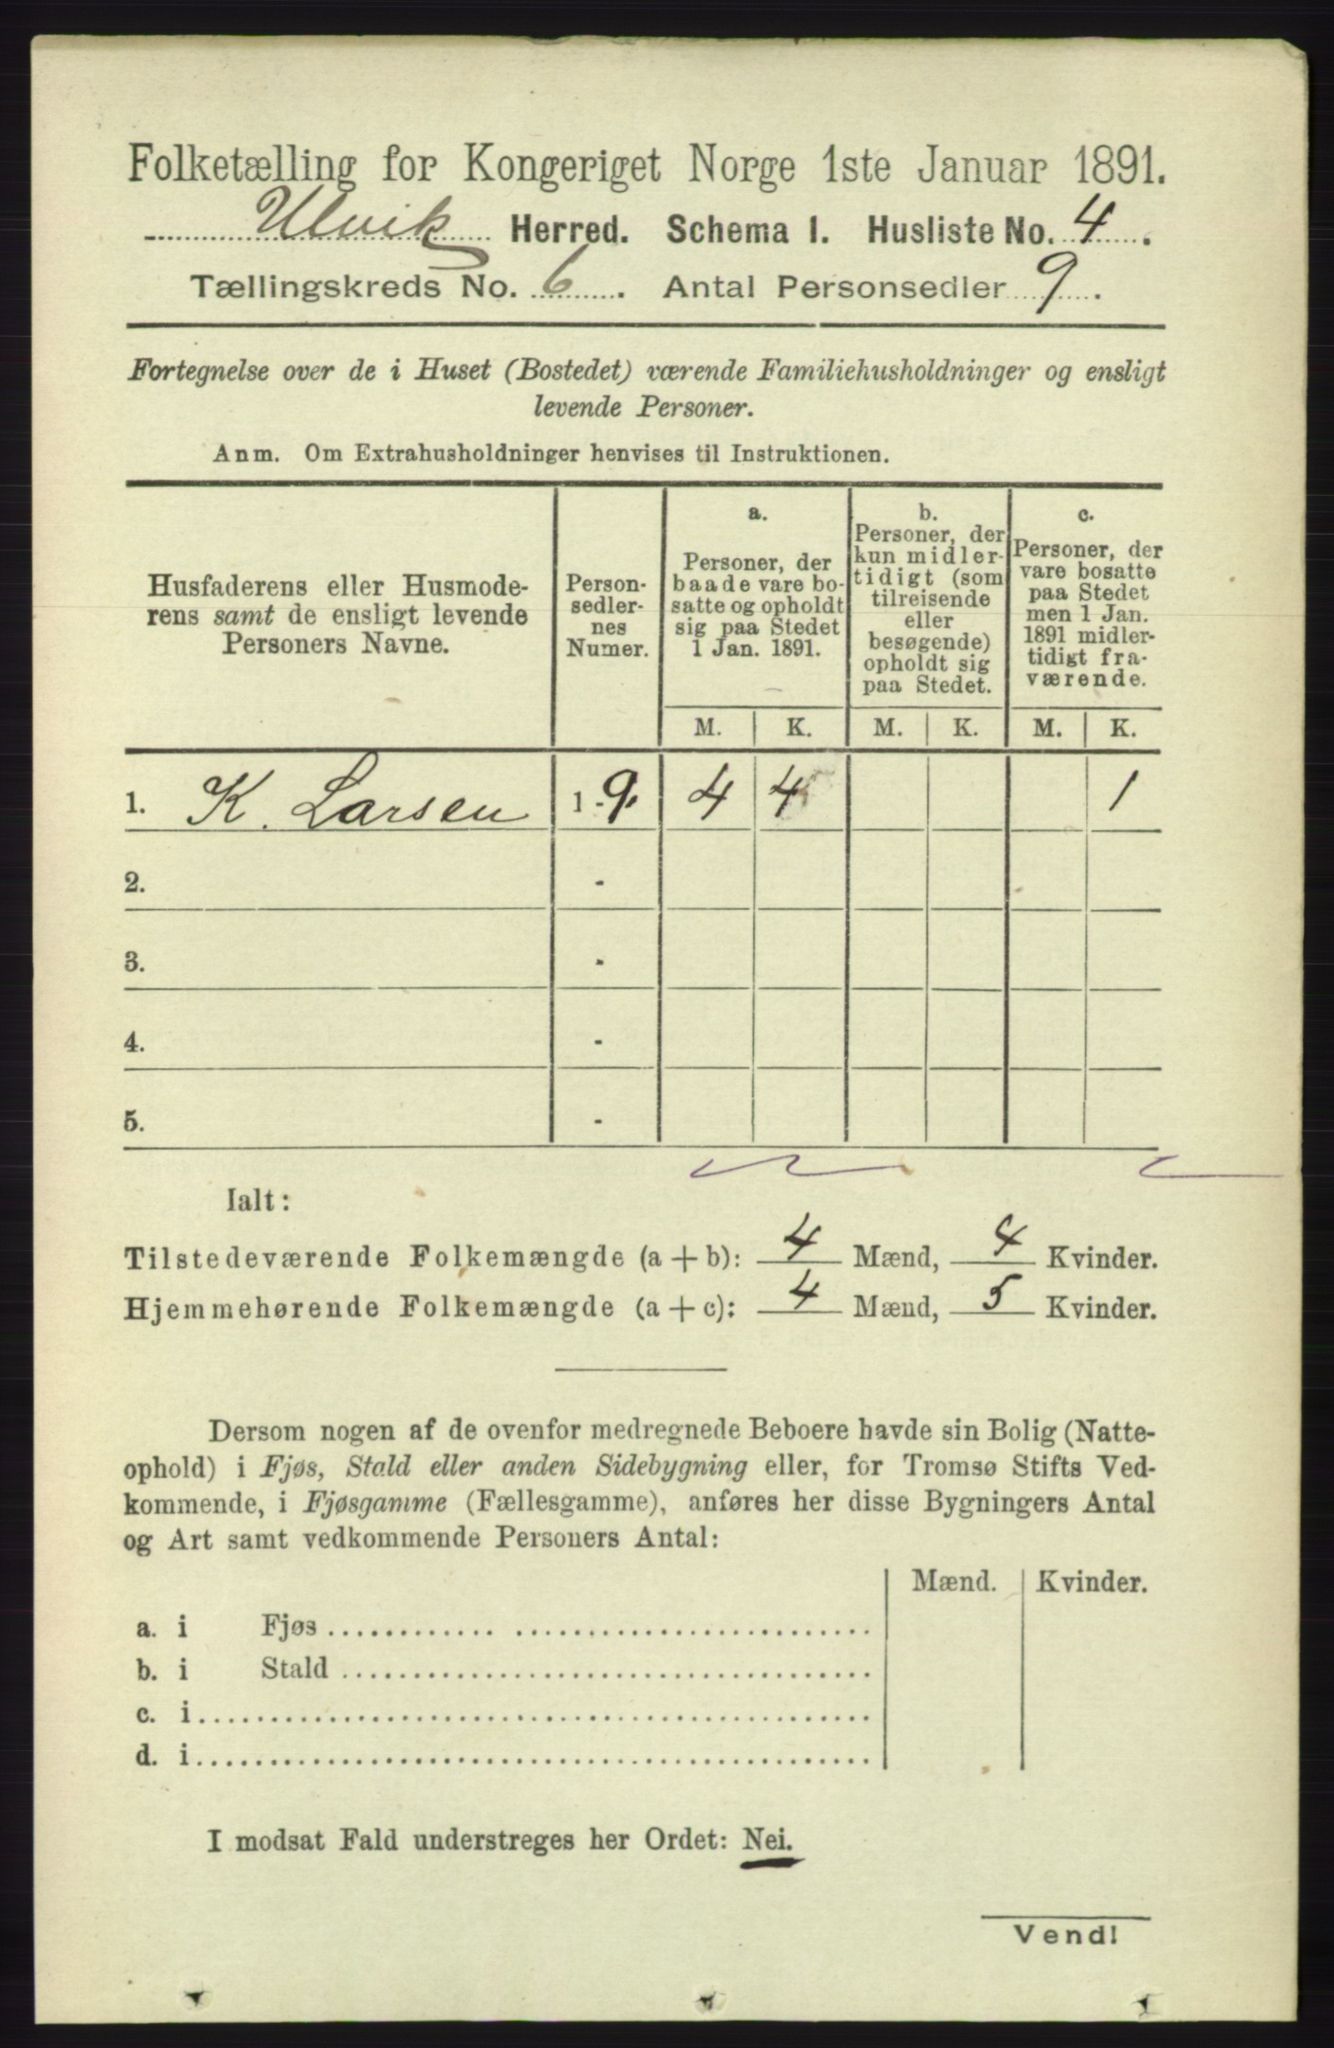 Folketælling for Kongeriget Norge 1ste Januar 1891.
Ulvik Herred. Schema I. Husliste No. 4.
Tællingskreds No. 6. Antal Personsedler 9.
Fortegnelse over de i Huset (Bostedet) værende Familiehusholdninger og ensligt
levende Personer.
Anm. Om Extrahusholdninger henvises til Instruktionen.
Husfaderens eller Husmode-
rens samt de ensligt levende
Personers Navne.
Person-
sedler-
nes
Numer.
a.
Personer, der
baade vare bo-
satte og opholdt
sig paa Stedet
1 Jan. 1891.
b.
Personer, der
kun midler-
tidigt (som
tilreisende
eller
besøgende)
opholdt sig
paa Stedet.
c.
Personer, der
vare bosatte
paa Stedet
men 1 Jan.
1891 midler-
tidigt fra-
værende.
M. K. M. K. M. K.
1. K. Larsen 1 - 9. 4 4 1
2. -
3. -
4. -
5. -
Ialt:
Tilstedeværende Folkemængde (a + b): 4 Mænd, 4 Kvinder.
Hjemmehørende Folkemængde (a + c): 4 Mænd, 5 Kvinder.
Dersom nogen af de ovenfor medregnede Beboere havde sin Bolig (Natte-
ophold) i Fjøs, Stald eller anden Sidebygning eller, for Tromsø Stifts Ved-
kommende, i Fjøsgamme (Fællesgamme), anføres her disse Bygningers Antal
og Art samt vedkommende Personers Antal:
Mænd. Kvinder.
a. i Fjøs
b. i Stald
c. i
d. i
I modsat Fald understreges her Ordet: Nei.
Vend!